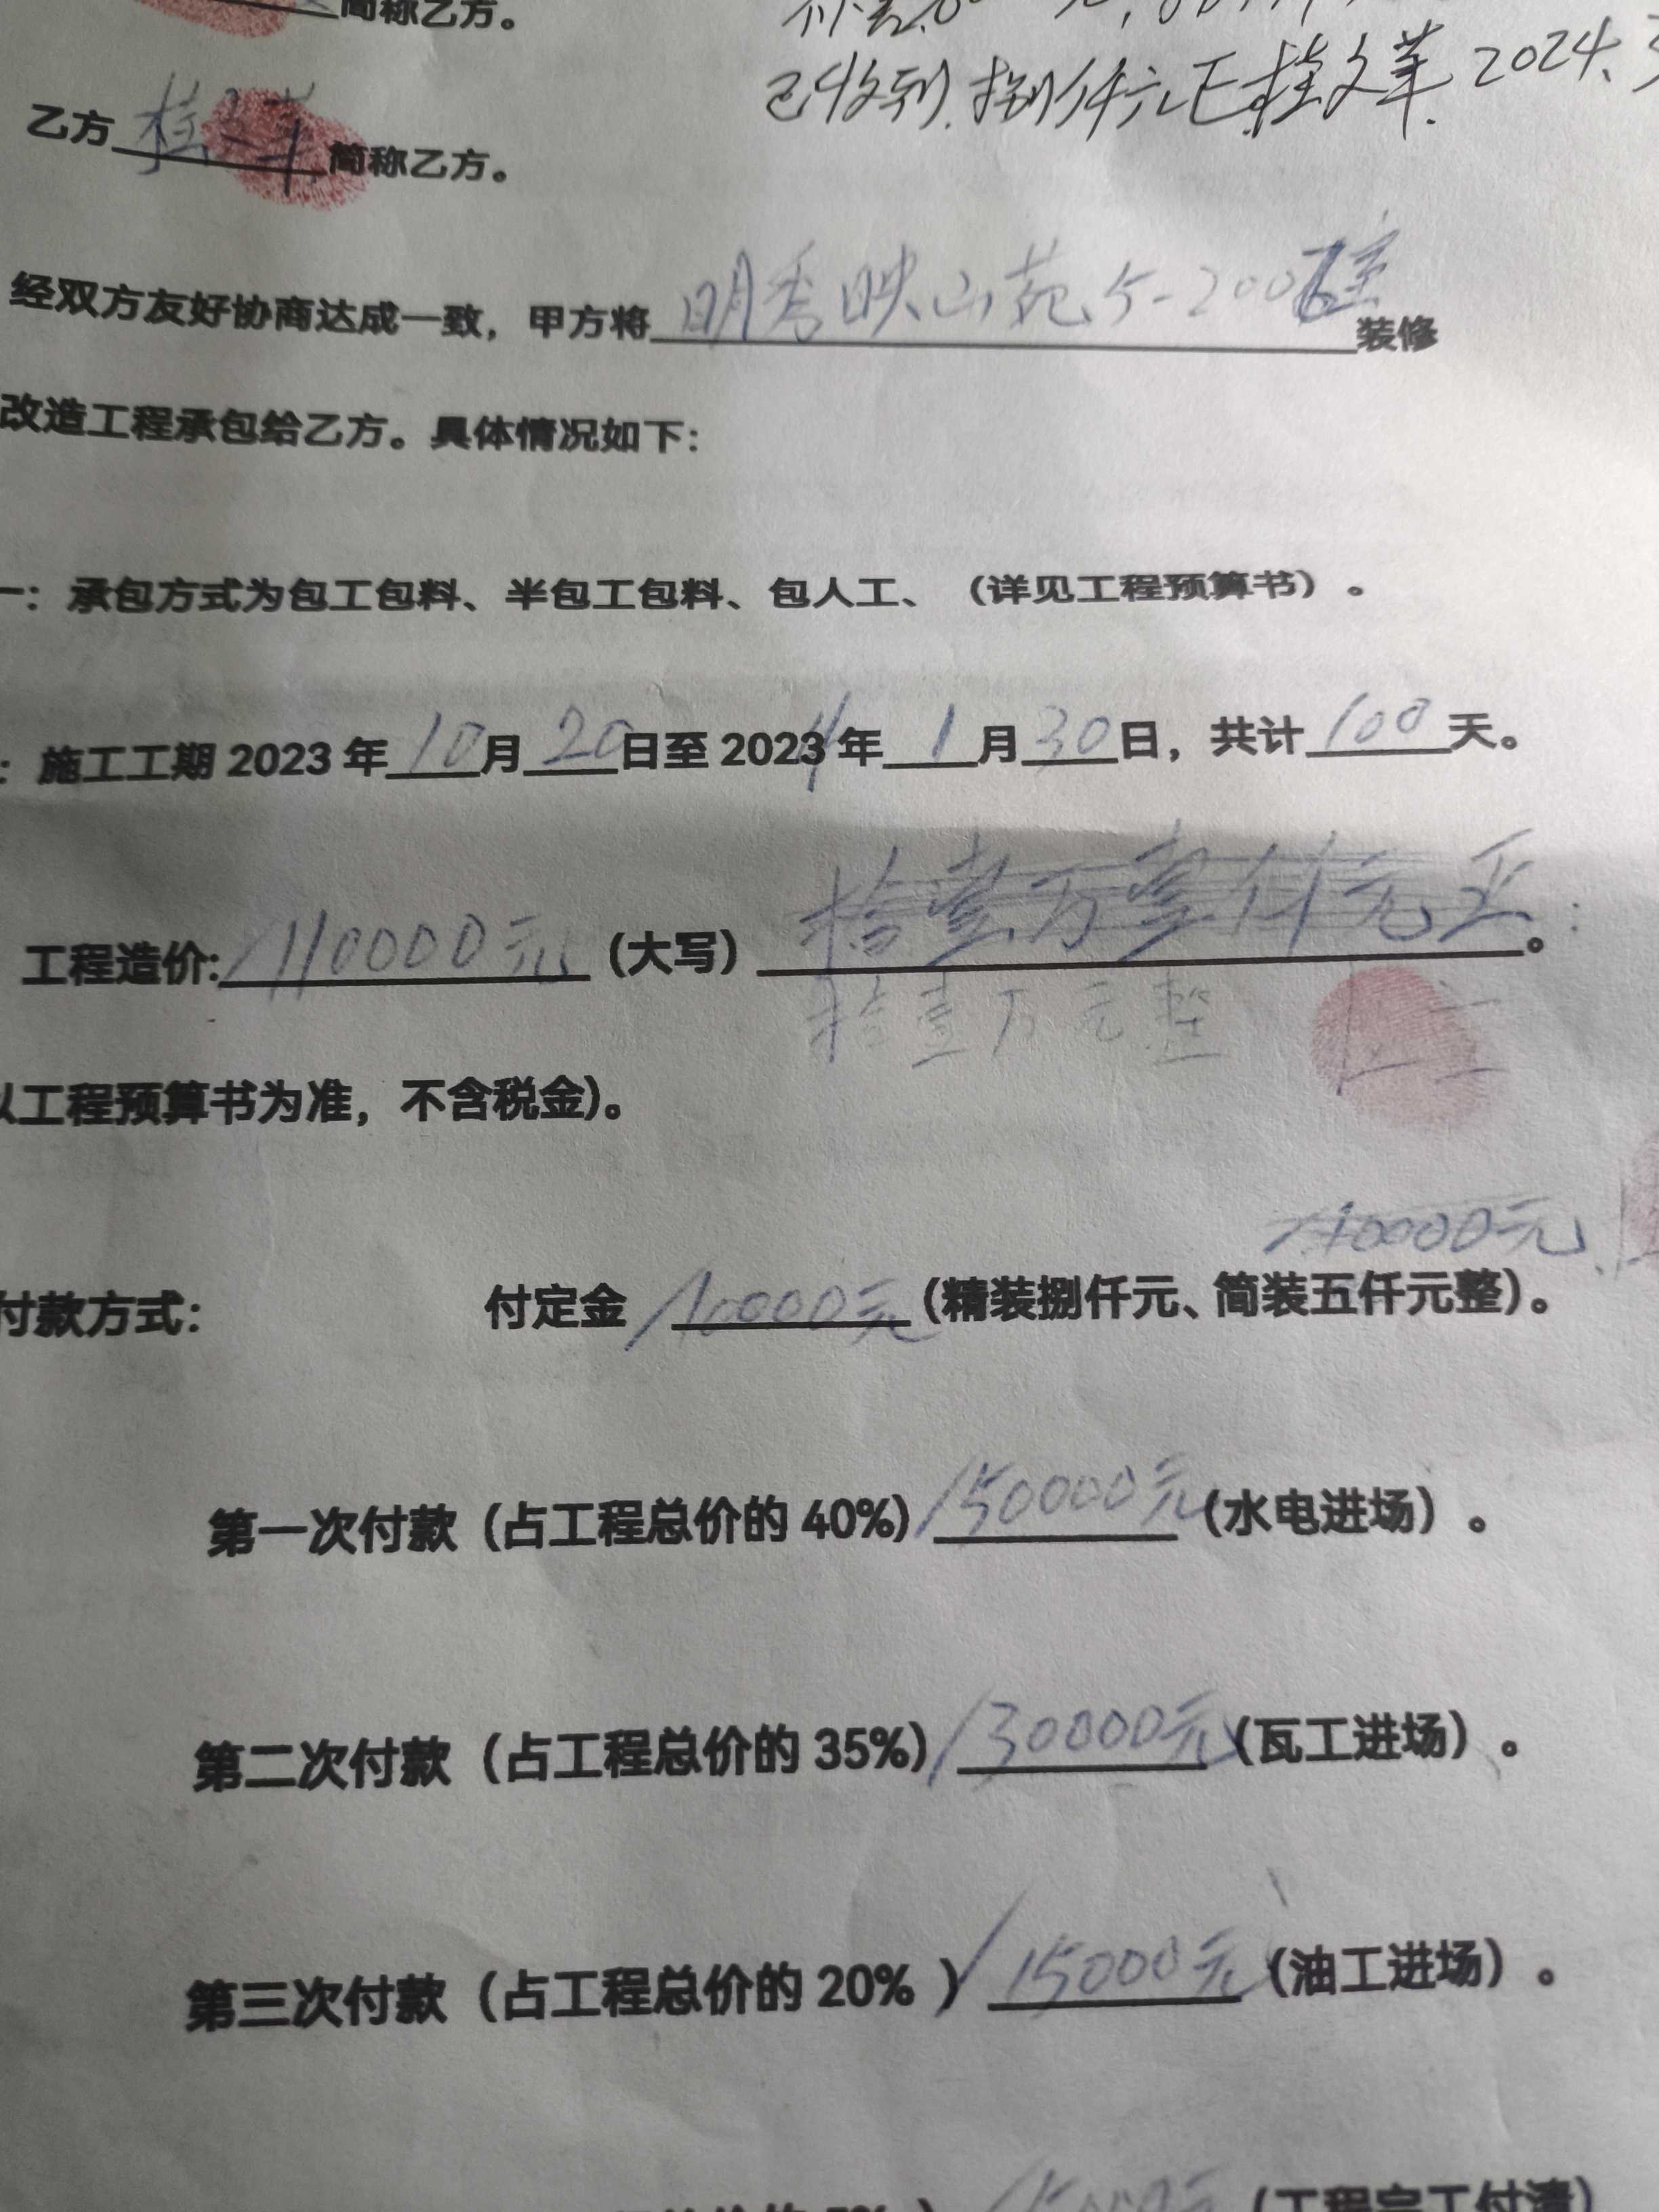 简称乙方。
已收到.捌仟元正.桂文革.2024、3
乙方桂文革简称乙方。
经双方友好协商达成一致，甲方将明秀映山苑5-2006室装修
改造工程承包给乙方。具体情况如下：
一：承包方式为包工包料、半包工包料、包人工、（详见工程预算书）。
：施工工期 2023 年10月20日至 2024年1月30日，共计100天。
工程造价:110000元（大写）拾壹万壹仟元正。
拾壹万元整
以工程预算书为准，不含税金)。
10000元
付款方式： 付定金 10000元（精装捌仟元、简装五仟元整）。
第一次付款（占工程总价的 40%）50000元（水电进场）。
第二次付款（占工程总价的 35%）30000元（瓦工进场）。
第三次付款（占工程总价的 20% ）15000元（油工进场）。
（工程完工付清）